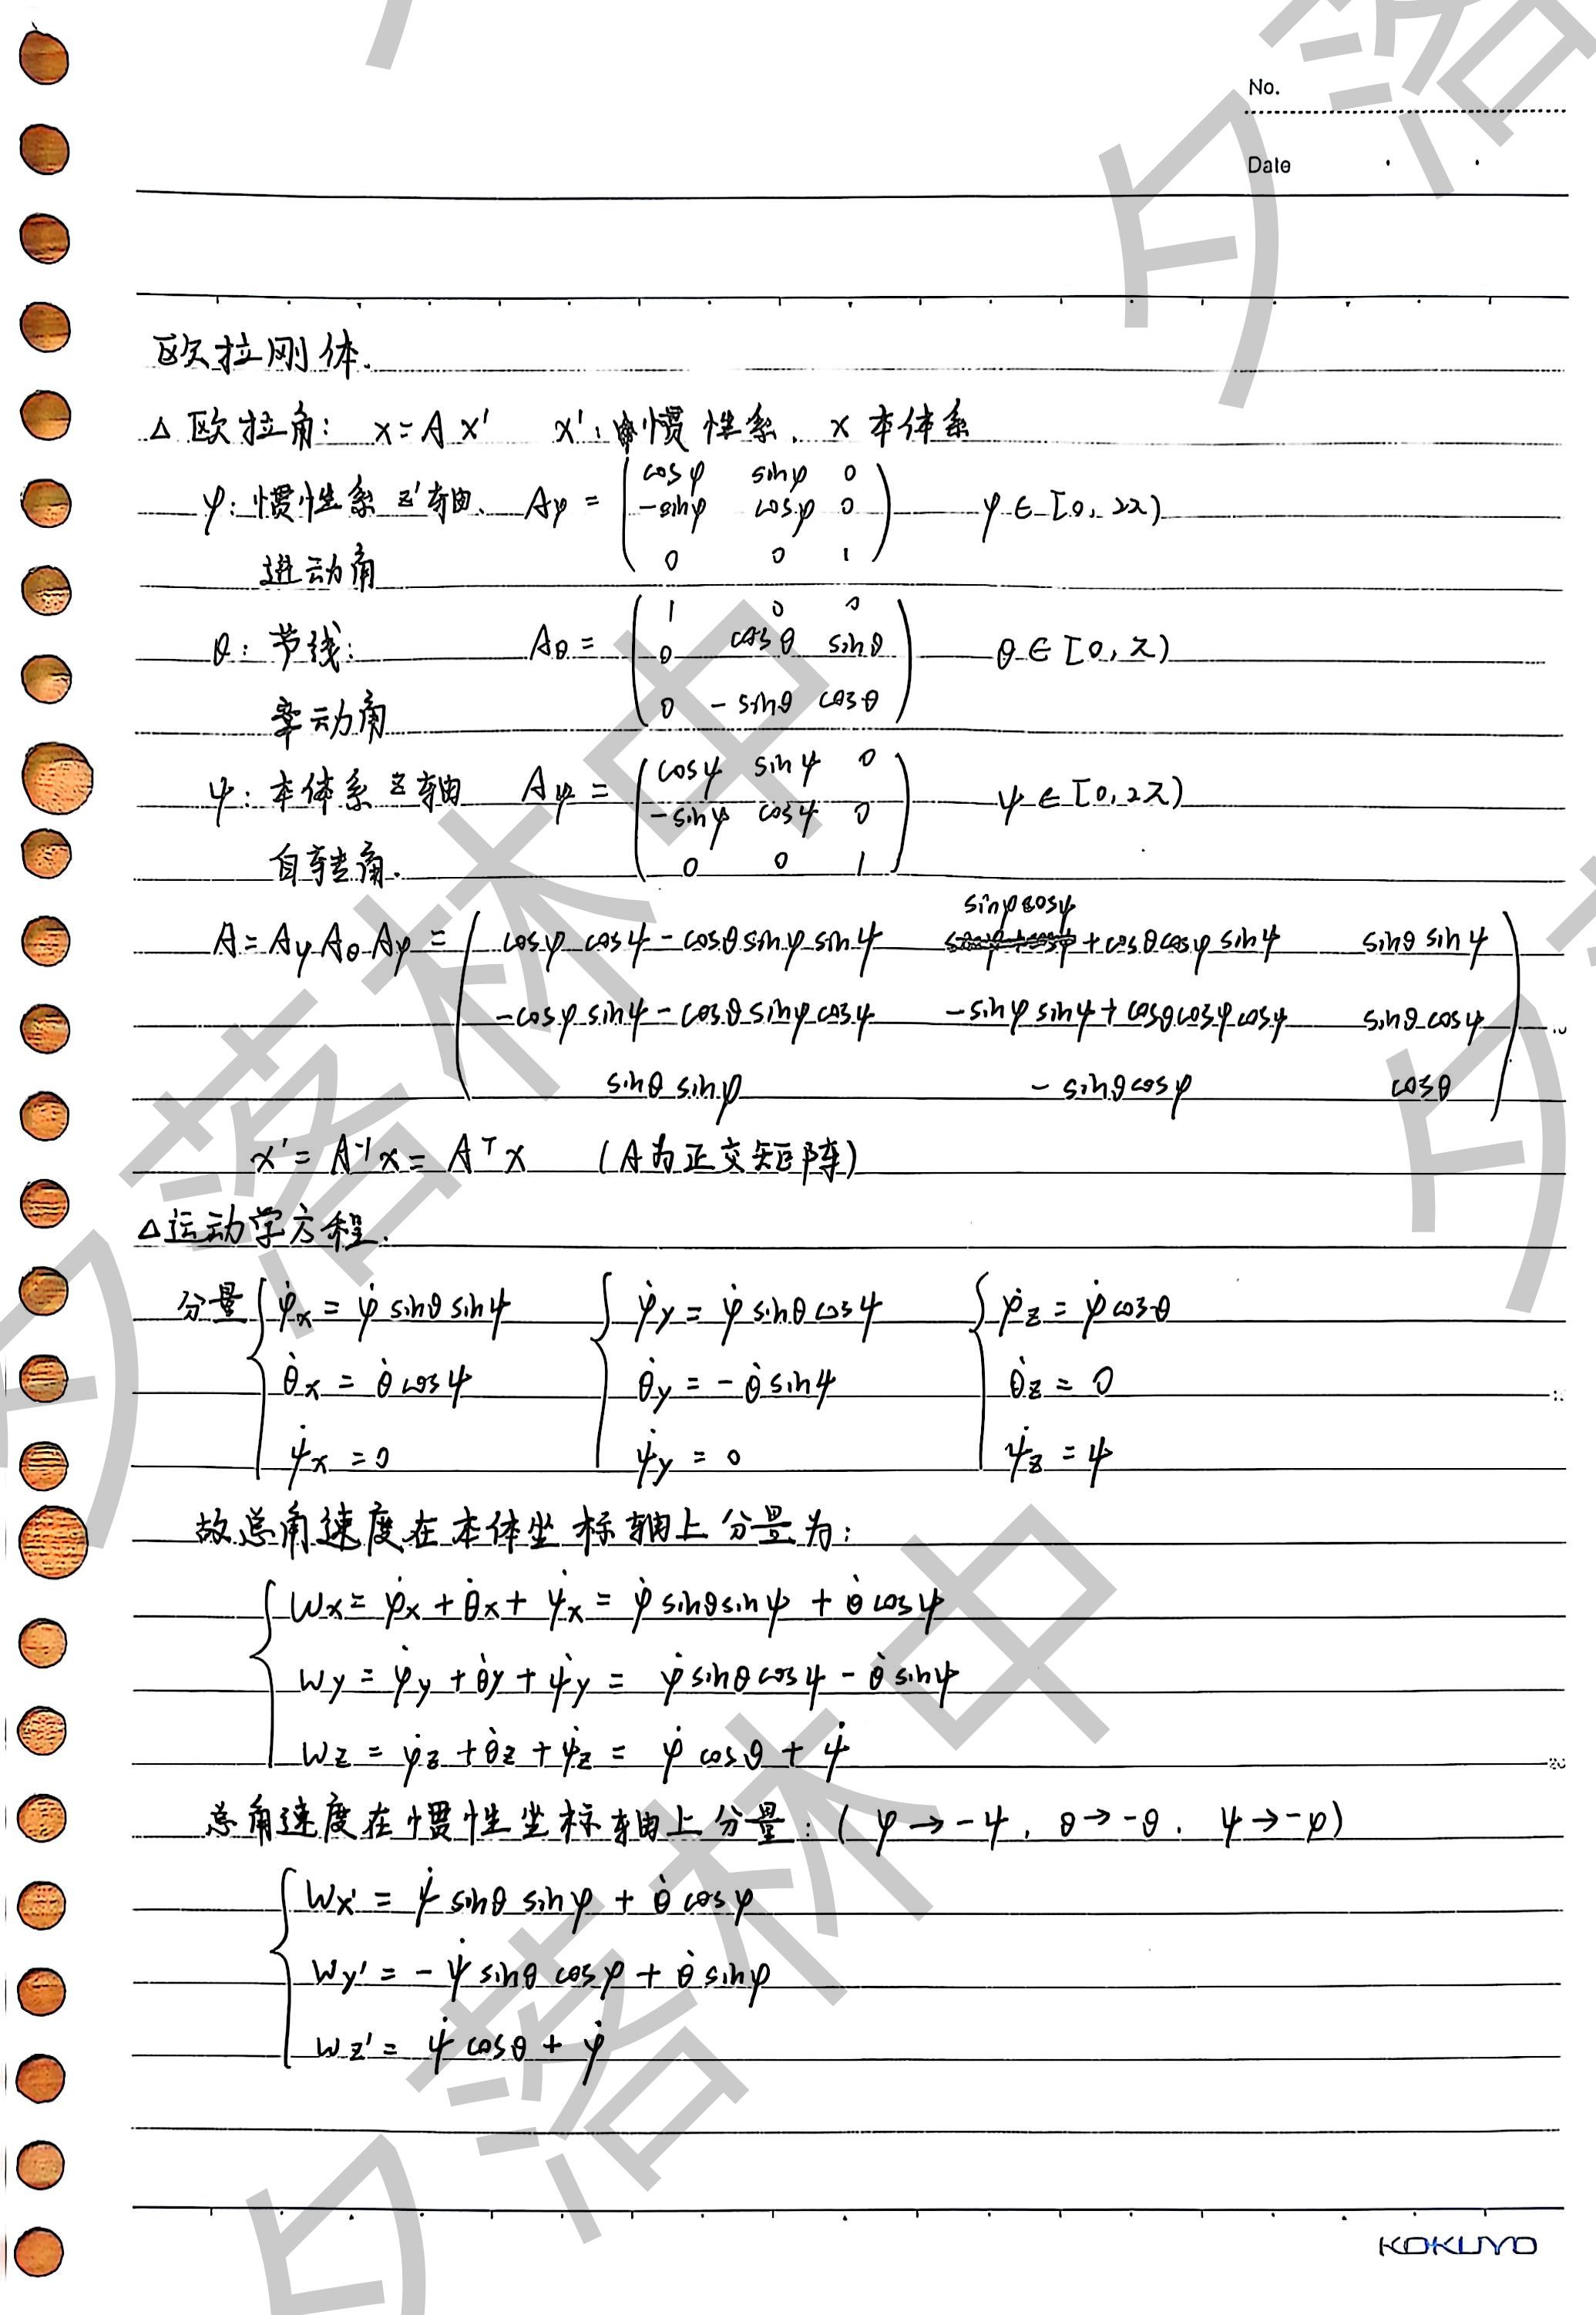 No.
Date
欧拉刚体.
△ 欧拉角: x=Ax' x': 惯性系. x 本体系
φ: 惯性系 z'轴. Aφ = ( cosφ sinφ 0
-sinφ cosφ 0
0 0 1 ) φ∈[0, 2π)
进动角
θ: 节线: Aθ = ( 1 0 0
0 cosθ sinθ
0 -sinθ cosθ ) θ∈[0, π)
章动角
ψ: 本体系 z轴 Aψ = ( cosψ sinψ 0
-sinψ cosψ 0
0 0 1 ) ψ∈[0, 2π)
自转角.
A = Aψ Aθ Aφ = ( cosφ cosψ - cosθ sinφ sinψ sinφ cosψ + cosθ cosφ sinψ sinθ sinψ
-cosφ sinψ - cosθ sinφ cosψ -sinφ sinψ + cosθ cosφ cosψ sinθ cosψ
sinθ sinφ - sinθ cosφ cosθ )
x' = A⁻¹x = Aᵀx (A为正交矩阵)
△运动学方程.
分量 { φ̇x = φ̇ sinθ sinψ { φ̇y = φ̇ sinθ cosψ { φ̇z = φ̇ cosθ
θ̇x = θ̇ cosψ θ̇y = -θ̇ sinψ θ̇z = 0
ψ̇x = 0 ψ̇y = 0 ψ̇z = ψ
故总角速度在本体坐标轴上分量为:
{ ωx = φ̇x + θ̇x + ψ̇x = φ̇ sinθ sinψ + θ̇ cosψ
ωy = φ̇y + θ̇y + ψ̇y = φ̇ sinθ cosψ - θ̇ sinψ
ωz = φ̇z + θ̇z + ψ̇z = φ̇ cosθ + ψ̇
总角速度在惯性坐标轴上分量: (φ→-ψ, θ→-θ. ψ→-φ)
{ ωx' = ψ̇ sinθ sinφ + θ̇ cosφ
ωy' = -ψ̇ sinθ cosφ + θ̇ sinφ
ωz' = ψ̇ cosθ + φ̇
KOKUYO
夕落林中
夕落林中